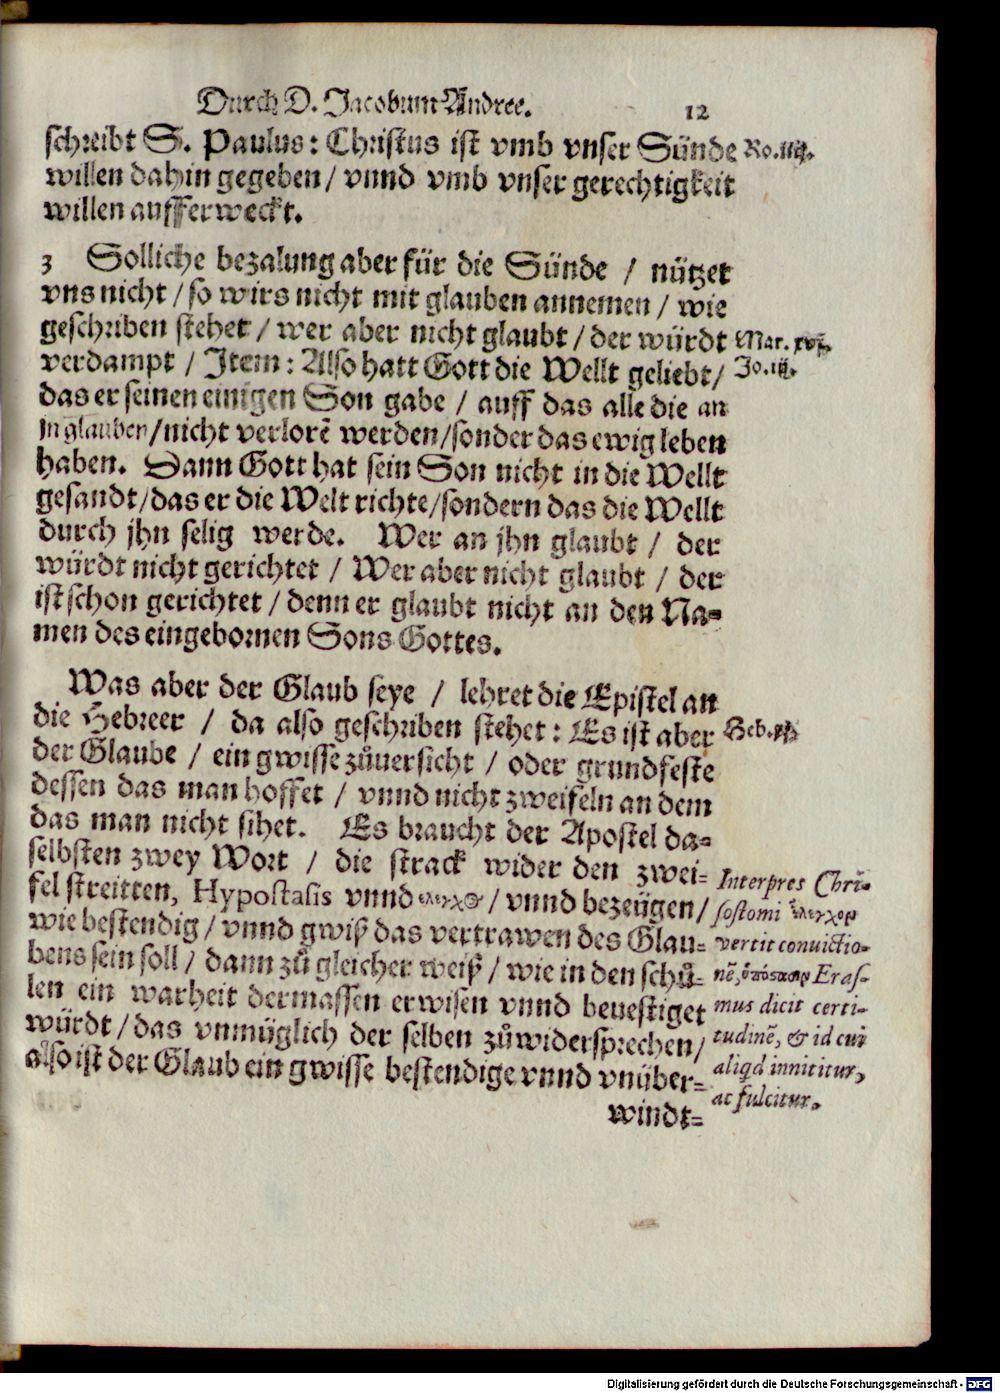 Durch D. Jacobum Andree. 12
schreibt S. Paulus: Christus ist vmb vnser Sünde
Ro. iiij.
willen dahin gegeben / vnnd vmb vnser gerechtigkeit
willen aufferweckt.
3 Solliche bezalung aber für die Sünde / nützet
vns nicht / so wirs nicht mit glauben annemen / wie
geschriben stehet / wer aber nicht glaubt / der würdt
Mar. xvj.
verdampt / Item: Also hatt Gott die Wellt geliebt /
Jo. iij.
das er seinen einigen Son gabe / auff das alle die an
jn glauben / nicht verlorẽ werden / sonder das ewig leben
haben. Dann Gott hat sein Son nicht in die Wellt
gesandt / das er die Welt richte / sondern das die Wellt
durch jhn selig werde. Wer an jhn glaubt / der
würdt nicht gerichtet / Wer aber nicht glaubt / der
ist schon gerichtet / denn er glaubt nicht an den Na=
men des eingebornen Sons Gottes.
Was aber der Glaub seye / lehret die Epistel an
die Hebreer / da also geschriben stehet: Es ist aber
Heb. xj.
der Glaube / ein gwisse zůuersicht / oder grundfeste
dessen das man hoffet / vnnd nicht zweifeln an dem
das man nicht sihet. Es braucht der Apostel da=
selbsten zwey Wort / die strack wider den zwei=
fel streitten, Hypostasis vnnd / vnnd bezeügen /
wie bestendig / vnnd gwiß das vertrawen des Glau=
bens sein soll / dann zů gleicher weiß / wie in den schů=
len ein warheit dermassen erwisen vnnd beuestiget
würdt / das vnmüglich der selben zůwidersprechen /
also ist der Glaub ein gwisse bestendige vnnd vnüber=
windt=
Interpres Chrī-
sostomi
vertit convictio-
nẽ, ὑπόστασιν Eras-
mus dicit certi-
tudinẽ, & id cui
aliqd innititur,
ac fulcitur.
Digitalisierung gefördert durch die Deutsche Forschungsgemeinschaft - DFG